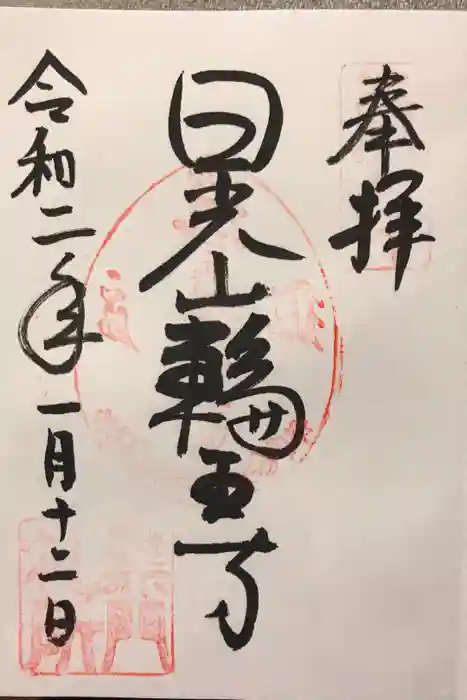 奉拝
日光山輪王寺
令和二年一月十二日